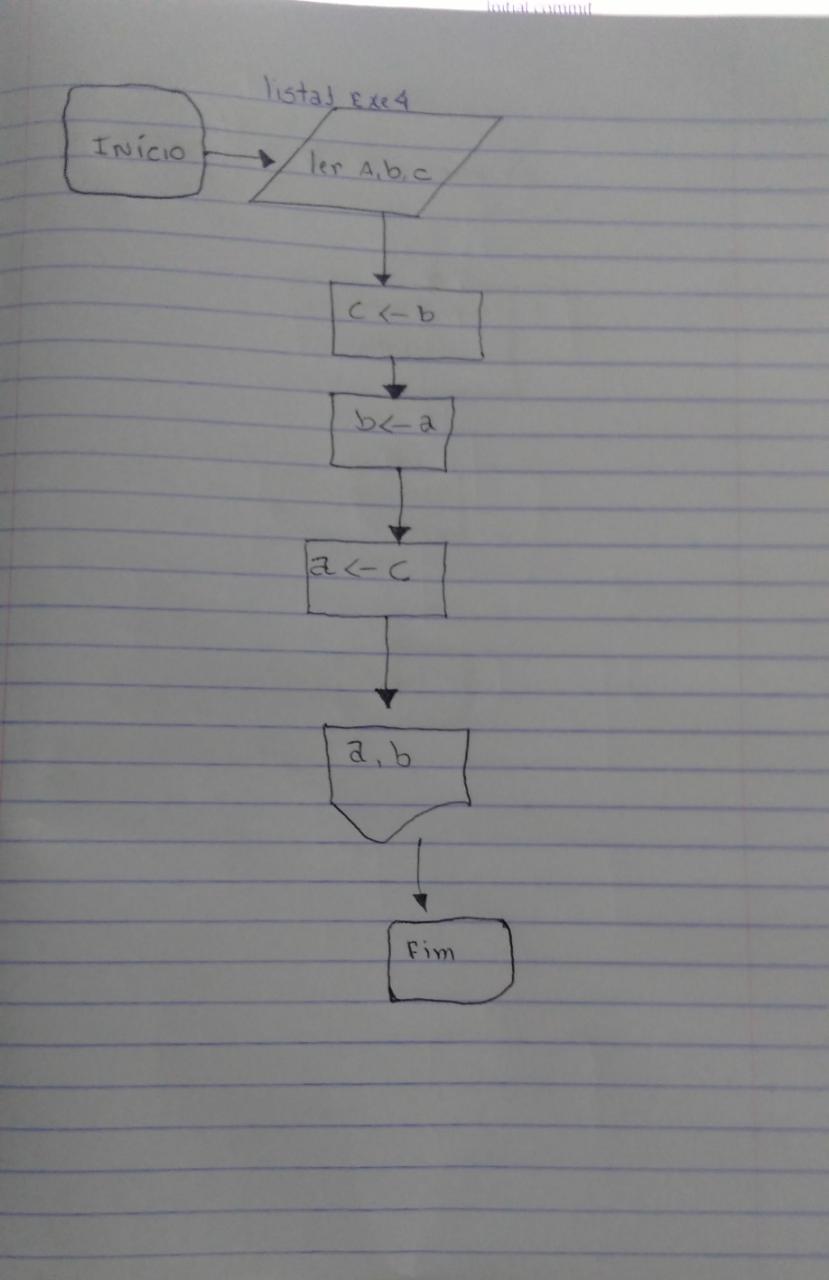 Initial commit
lista1 Exe4
INÍCIO
ler A, b, c
c <- b
b <- a
a <- c
a, b
Fim